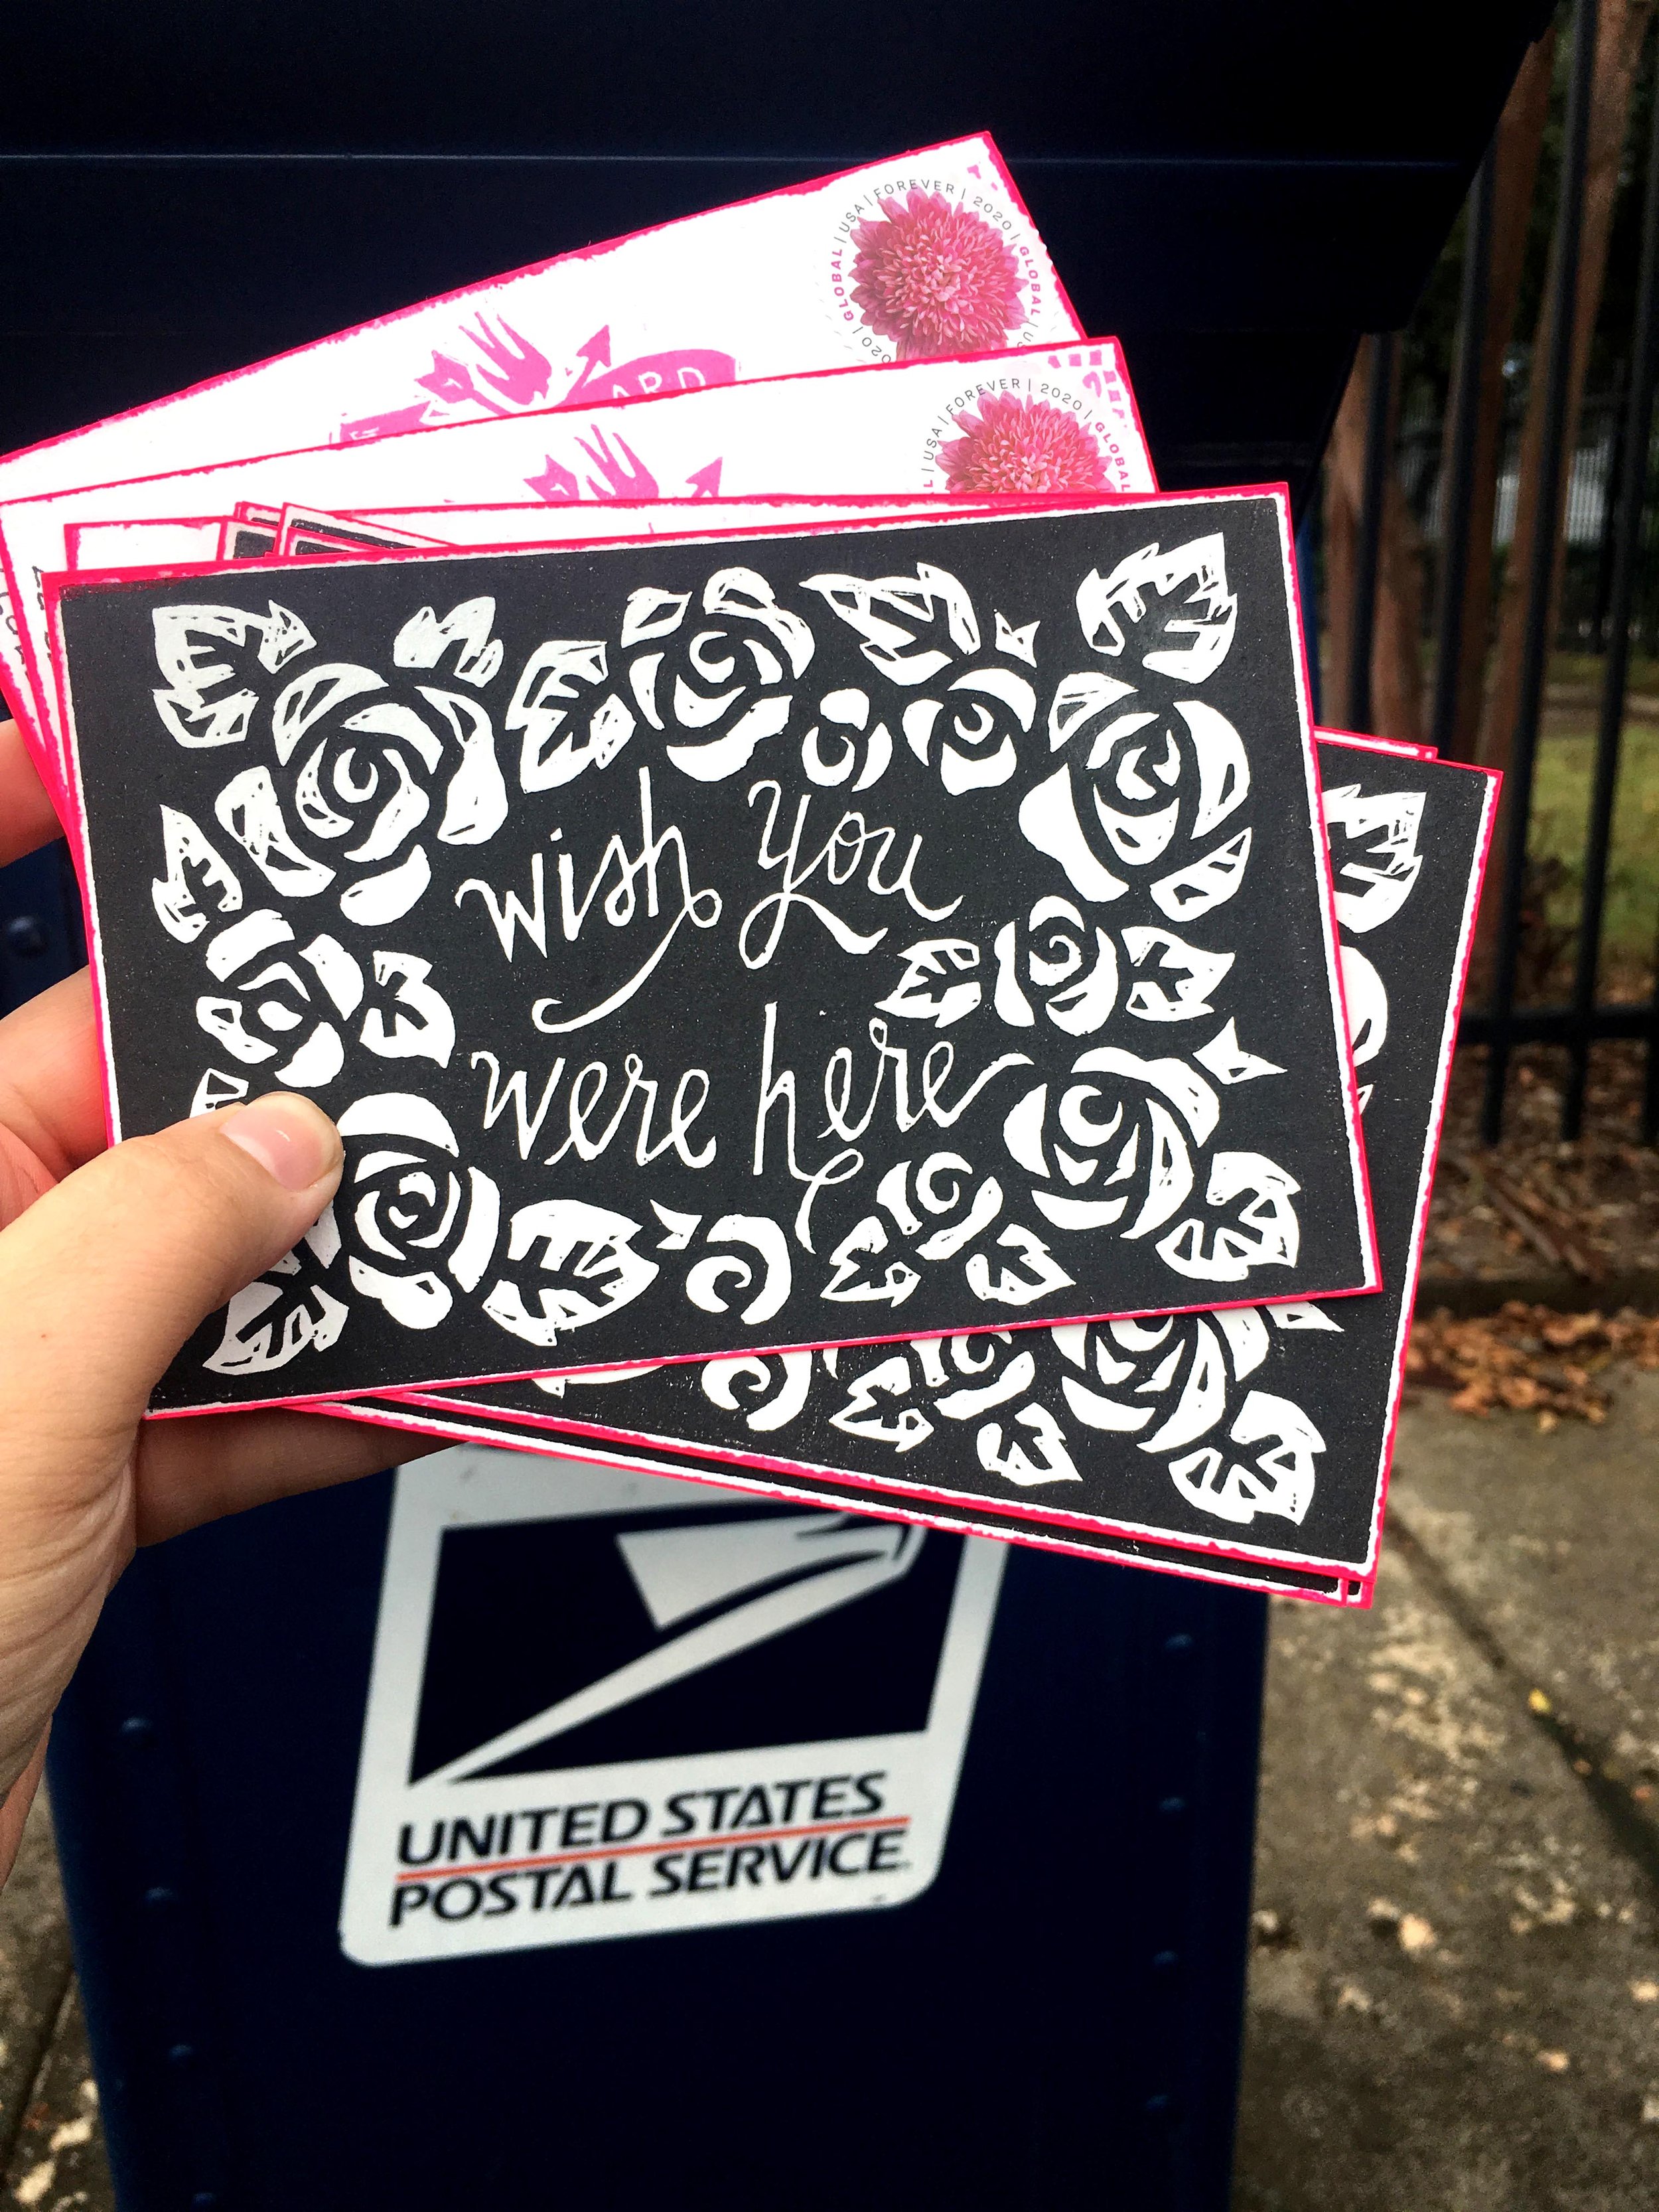 GLOBAL | USA | FOREVER | 2020 | GLOBAL | US
2020
ARD
USA | FOREVER | 2020 | GLOBAL
wish you
were here
UNITED STATES
POSTAL SERVICE